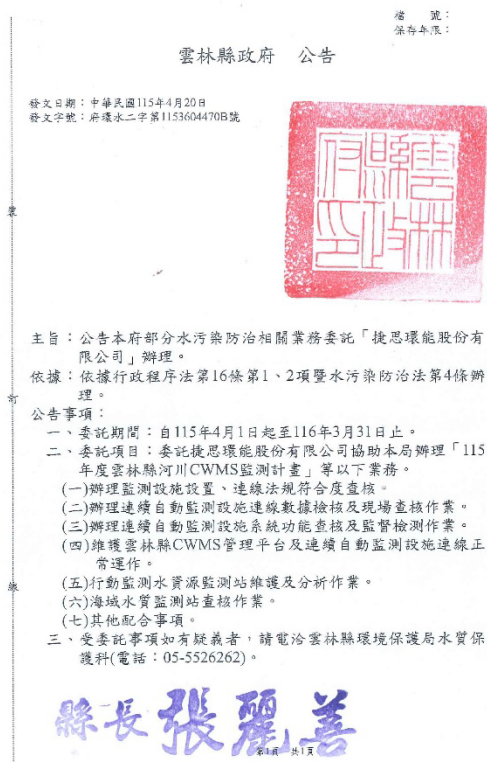 檔　　號：
保存年限：
雲林縣政府　公告
發文日期：中華民國115年4月20日
發文字號：府環水二字第1153604470B號
雲林縣政府印
裝
主旨：公告本府部分水污染防治相關業務委託「捷思環能股份有
限公司」辦理。
依據：依據行政程序法第16條第1、2項暨水污染防治法第4條辦
理。
訂
公告事項：
一、委託期間：自115年4月1日起至116年3月31日止。
二、委託項目：委託捷思環能股份有限公司協助本局辦理「115
年度雲林縣河川CWMS監測計畫」等以下業務。
(一)辦理監測設施設置、連線法規符合度查核。
(二)辦理連續自動監測設施連線數據檢核及現場查核作業。
(三)辦理連續自動監測設施系統功能查核及監督檢測作業。
(四)維護雲林縣CWMS管理平台及連續自動監測設施連線正
常運作。
線
(五)行動監測水資源監測站維護及分析作業。
(六)海域水質監測站查核作業。
(七)其他配合事項。
三、受委託事項如有疑義者，請電洽雲林縣環境保護局水質保
護科(電話：05-5526262)。
縣長張麗善
第1頁　共1頁